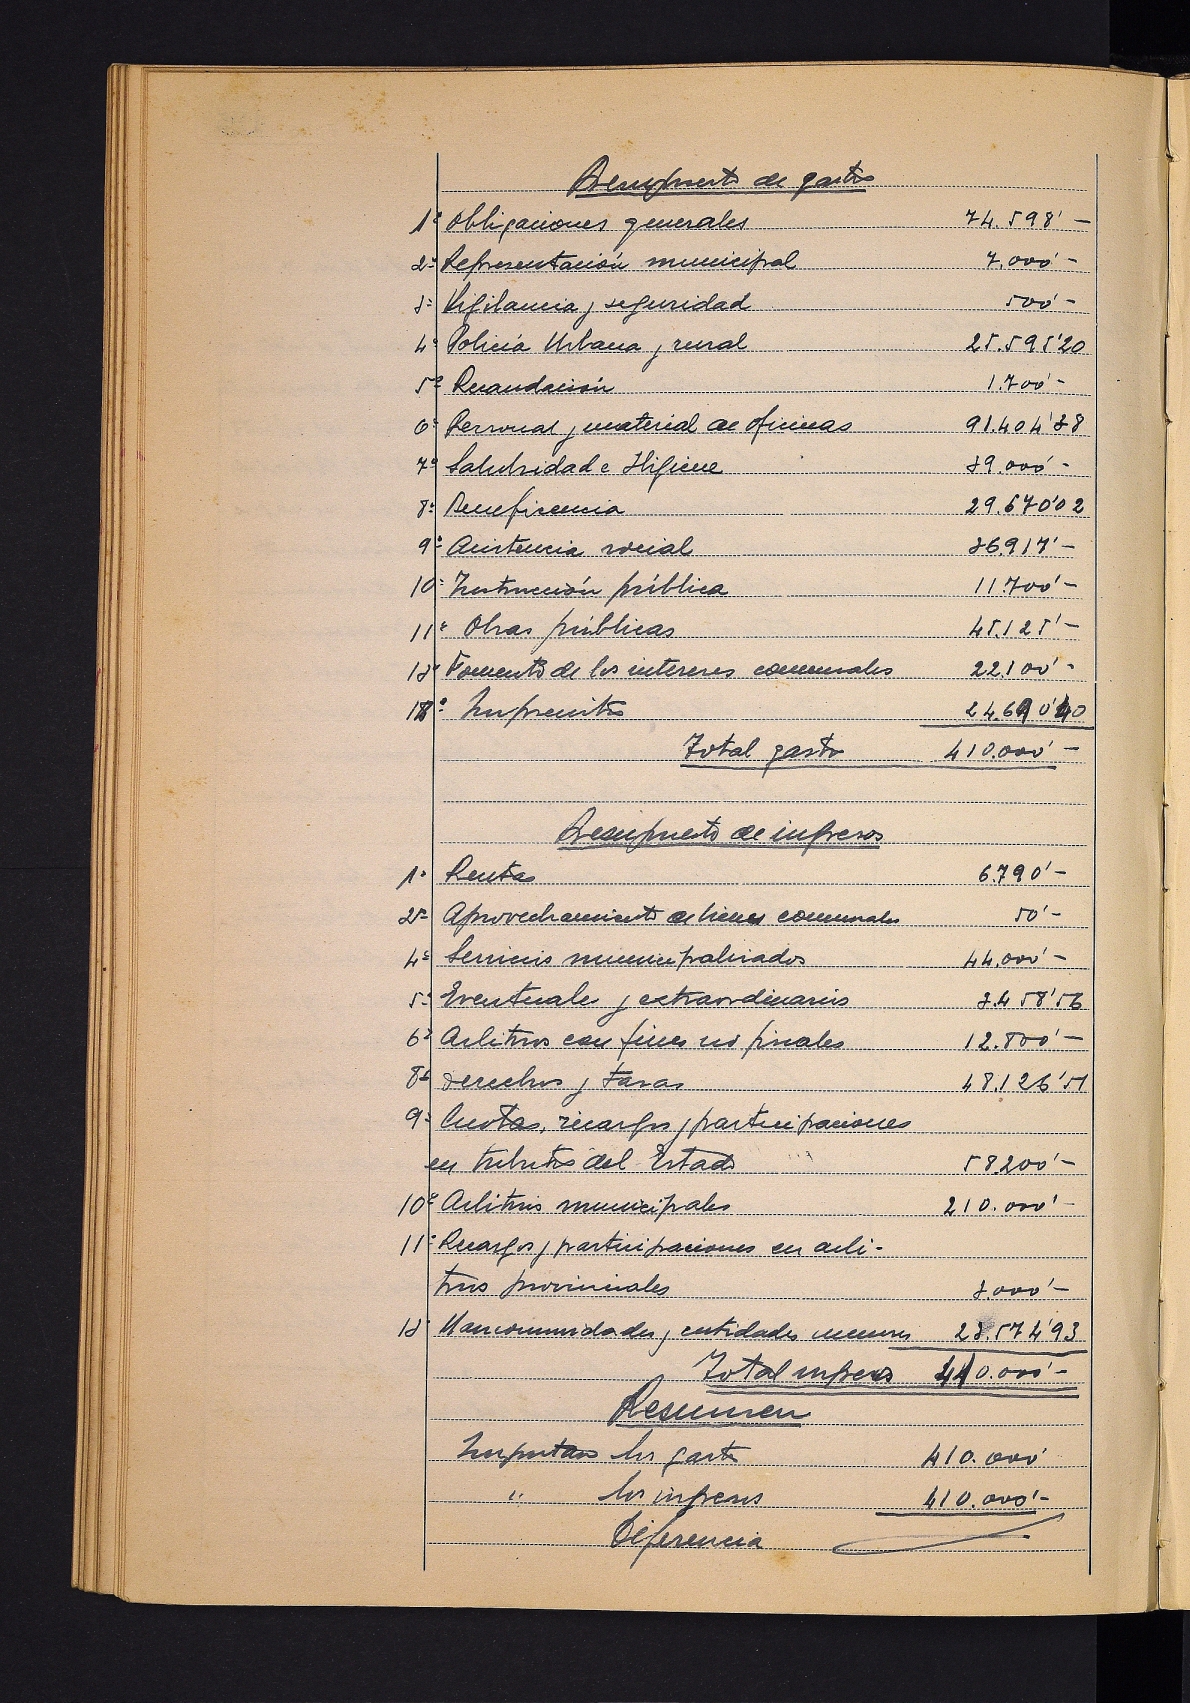 Presupuesto de gastos
1º Obligaciones generales 74.598'-
2º Representación municipal 7.000'-
3º Vigilancia y seguridad 500'-
4º Policía Urbana y rural 25.595'20
5º Recaudación 1.700'-
6º Personal y material de oficinas 91.404'38
7º Salubridad e Higiene 39.000'-
8º Beneficencia 29.670'02
9º Asistencia social 36.917'-
10º Instrucción pública 11.700'-
11º Obras públicas 45.125'-
13º Fomento de los intereses comunales 22.100'-
18º Imprevistos 24.690'40
Total gastos 410.000'-
Presupuesto de ingresos
1º Rentas 6.790'-
2º Aprovechamiento de bienes comunales 50'-
4º Servicios municipalizados 44.000'-
5º Eventuales y extraordinarios 3.458'56
6º Arbitrios con fines no fiscales 12.800'-
8º Derechos y tasas 48.126'51
9º Cuotas, recargos y participaciones
en tributos del Estado 58.200'-
10º Arbitrios municipales 210.000'-
11º Recargos y participaciones en arbi-
trios provinciales 3.000'-
13º Mancomunidades y entidades menores 23.574'93
Total ingresos 410.000'-
Resumen
Importan los gastos 410.000'
" los ingresos 410.000'-
Diferencia